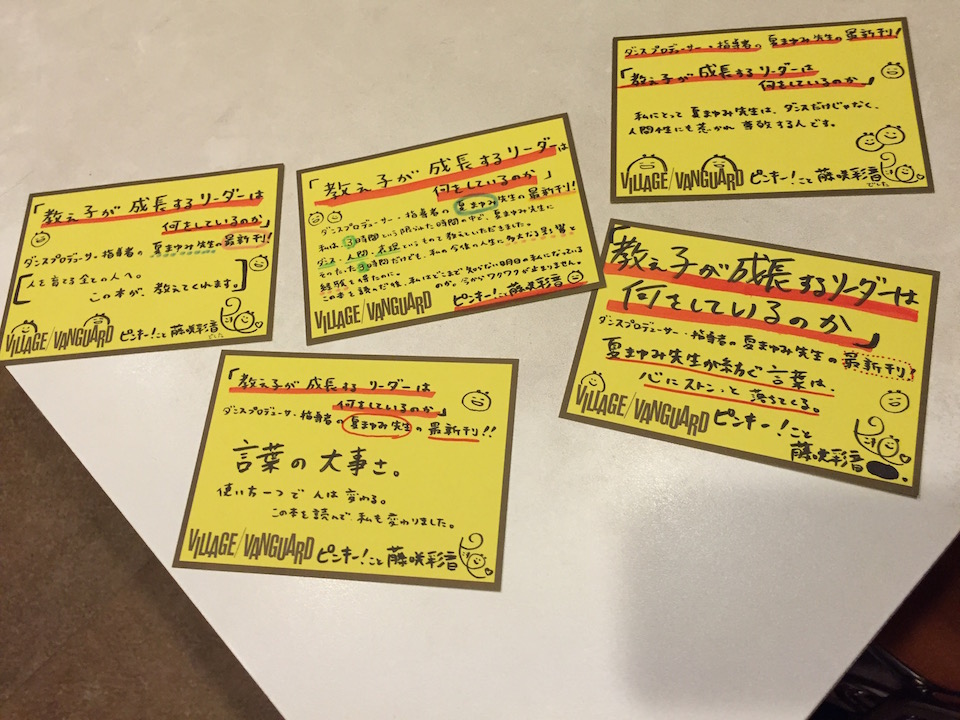 ダンスプロデューサー・指導者の 夏まゆみ先生の 最新刊!
「教え子が 成長する リーダーは
何をしているのか」
私にとって 夏まゆみ先生は、ダンスだけじゃなく、
人間性にも惹かれ 尊敬する人です。
VILLAGE/VANGUARD ピンキー!こと 藤咲彩音
でした
「教え子が 成長する リーダーは
何をしているのか」
ダンスプロデューサー・指導者の 夏まゆみ先生の 最新刊!
私は、3時間という限られた時間の中で、夏まゆみ先生に
ダンス・人間・表現というものを教えていただきました。
そのたった3時間だけでも、私の今後の人生に多大なる影響と
経験を得たのに。
この本を読んだ後、私はどこまで知らない明日の私になっている
のか。今からワクワクが止まりません。
VILLAGE/VANGUARD ピンキー!こと藤咲彩音
「教え子が 成長する リーダーは
何をしているのか」
ダンスプロデューサー・指導者の 夏まゆみ先生の 最新刊!
[人を育てる全ての人へ。
この本が、教えてくれます。]
VILLAGE/VANGUARD ピンキー!こと 藤咲彩音
でした
「教え子が成長するリーダーは
何をしているのか」
ダンスプロデューサー・指導者の 夏まゆみ先生の 最新刊!
夏まゆみ先生が紡ぐ 言葉は、
心にストン、と 落ちてくる。
VILLAGE/VANGUARD ピンキー!こと
藤咲彩音
「教え子が 成長する リーダーは
何をしているのか」
ダンスプロデューサ・指導者の 夏まゆみ先生の 最新刊!!
言葉の 大事さ。
使い方一つで 人は変わる。
この本を読んで、私も変わりました。
VILLAGE/VANGUARD ピンキー!こと 藤咲彩音